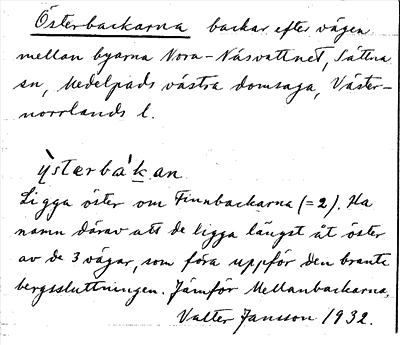 Österbackarna backar efter vägen
mellan byarna Nora-Näsvattnet, Sättna
sn, Medelpads västra domsaga, Väster-
norrlands l.
ỳstərbák̠an
Ligga öster om Finnbackarna (=2). Ha
namn därav att de ligga längst åt öster
av de 3 vägar, som föra uppför den branta
bergssluttningen. Jämför Mellanbackarna.
Valter Jansson 1932.